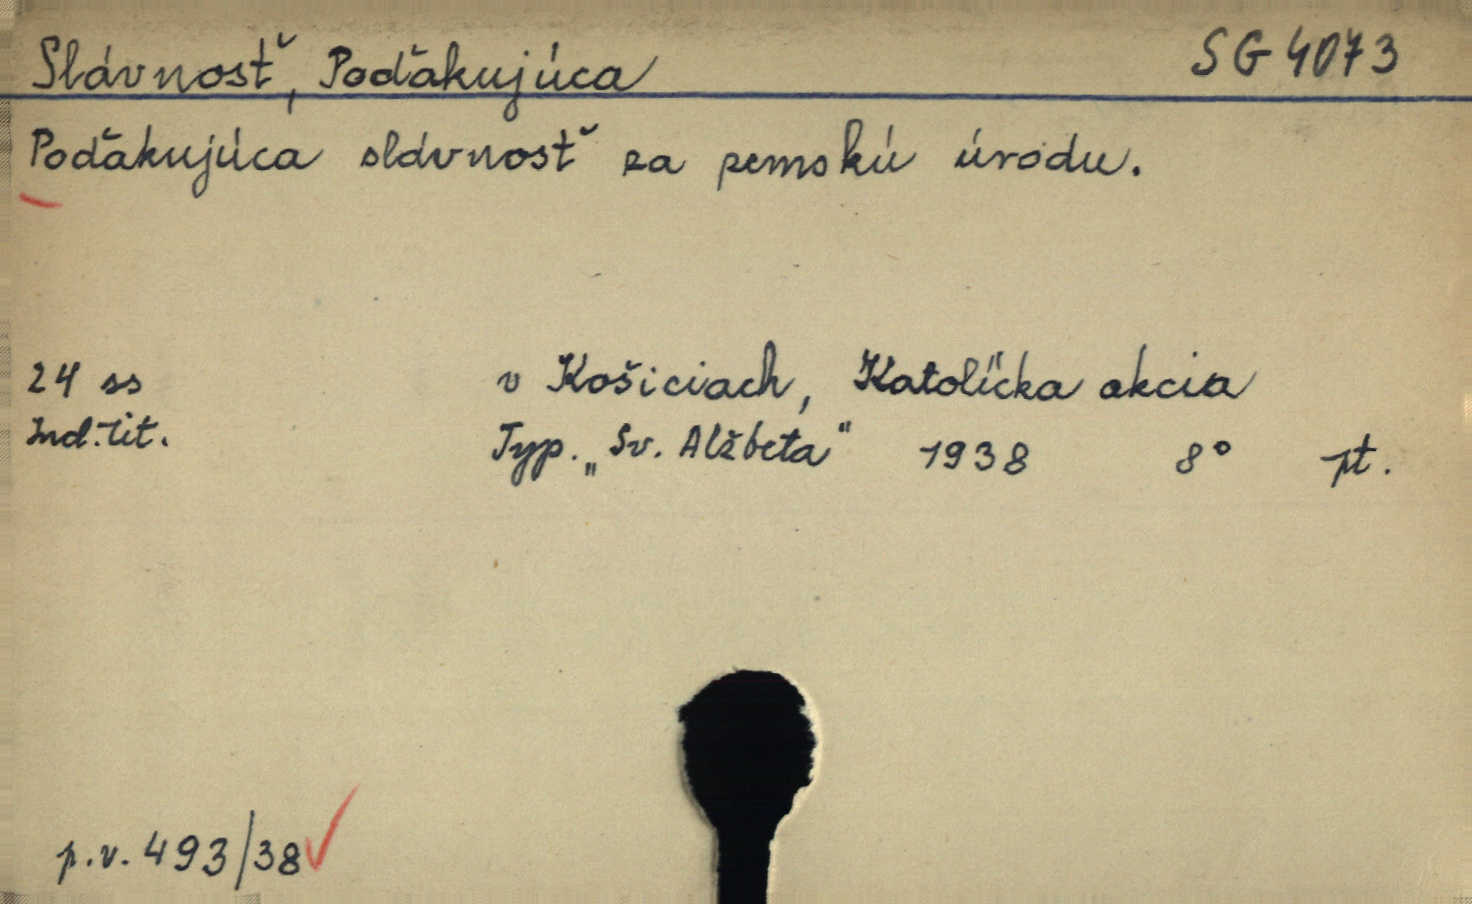 Slávnosť, Poďakujúca SG 4073
Poďakujúca slávnosť za zemskú úrodu.
24 ss v Košiciach, Katolícka akcia
Ind. lit. Typ. „Sv. Alžbeta" 1938 8° pt.
p.v. 493/38